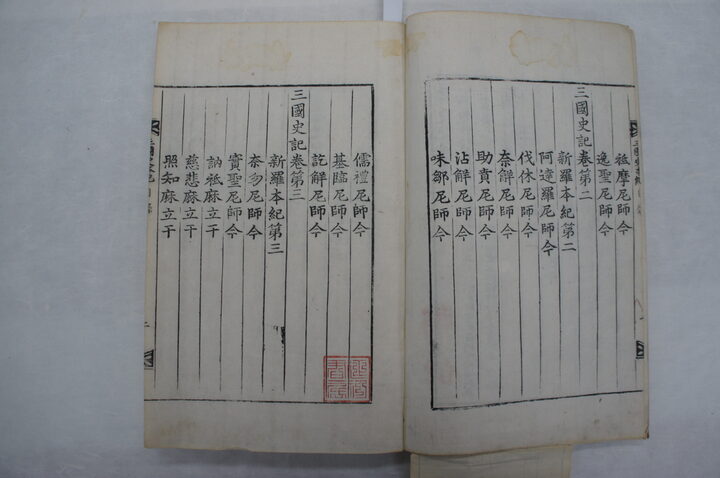 祗摩尼師今
逸聖尼師今
三國史記卷第二
新羅本紀第二
阿達羅尼師今
伐休尼師今
奈解尼師今
助賁尼師今
沾解尼師今
味鄒尼師今
儒禮尼師今
基臨尼師今
訖解尼師今
三國史記卷第三
新羅本紀第三
奈勿尼師今
實聖尼師今
訥祗麻立干
慈悲麻立干
照知麻立干